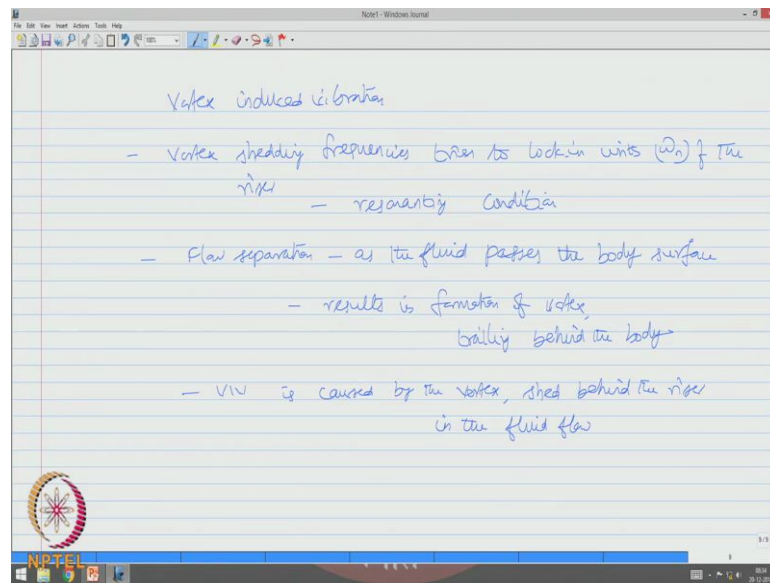 Note1 - Windows Journal
File Edit View Insert Actions Tools Help
Vortex induced vibration
- Vortex shedding frequencies tries to lock-in with (ωn) of the
riser
- resonanting condition
- Flow separation - as the fluid passes the body surface
- results is formation of vortex,
trailing behind the body
- VIV is caused by the vortex, shed behind the riser
in the fluid flow
NPTEL
9/9
9